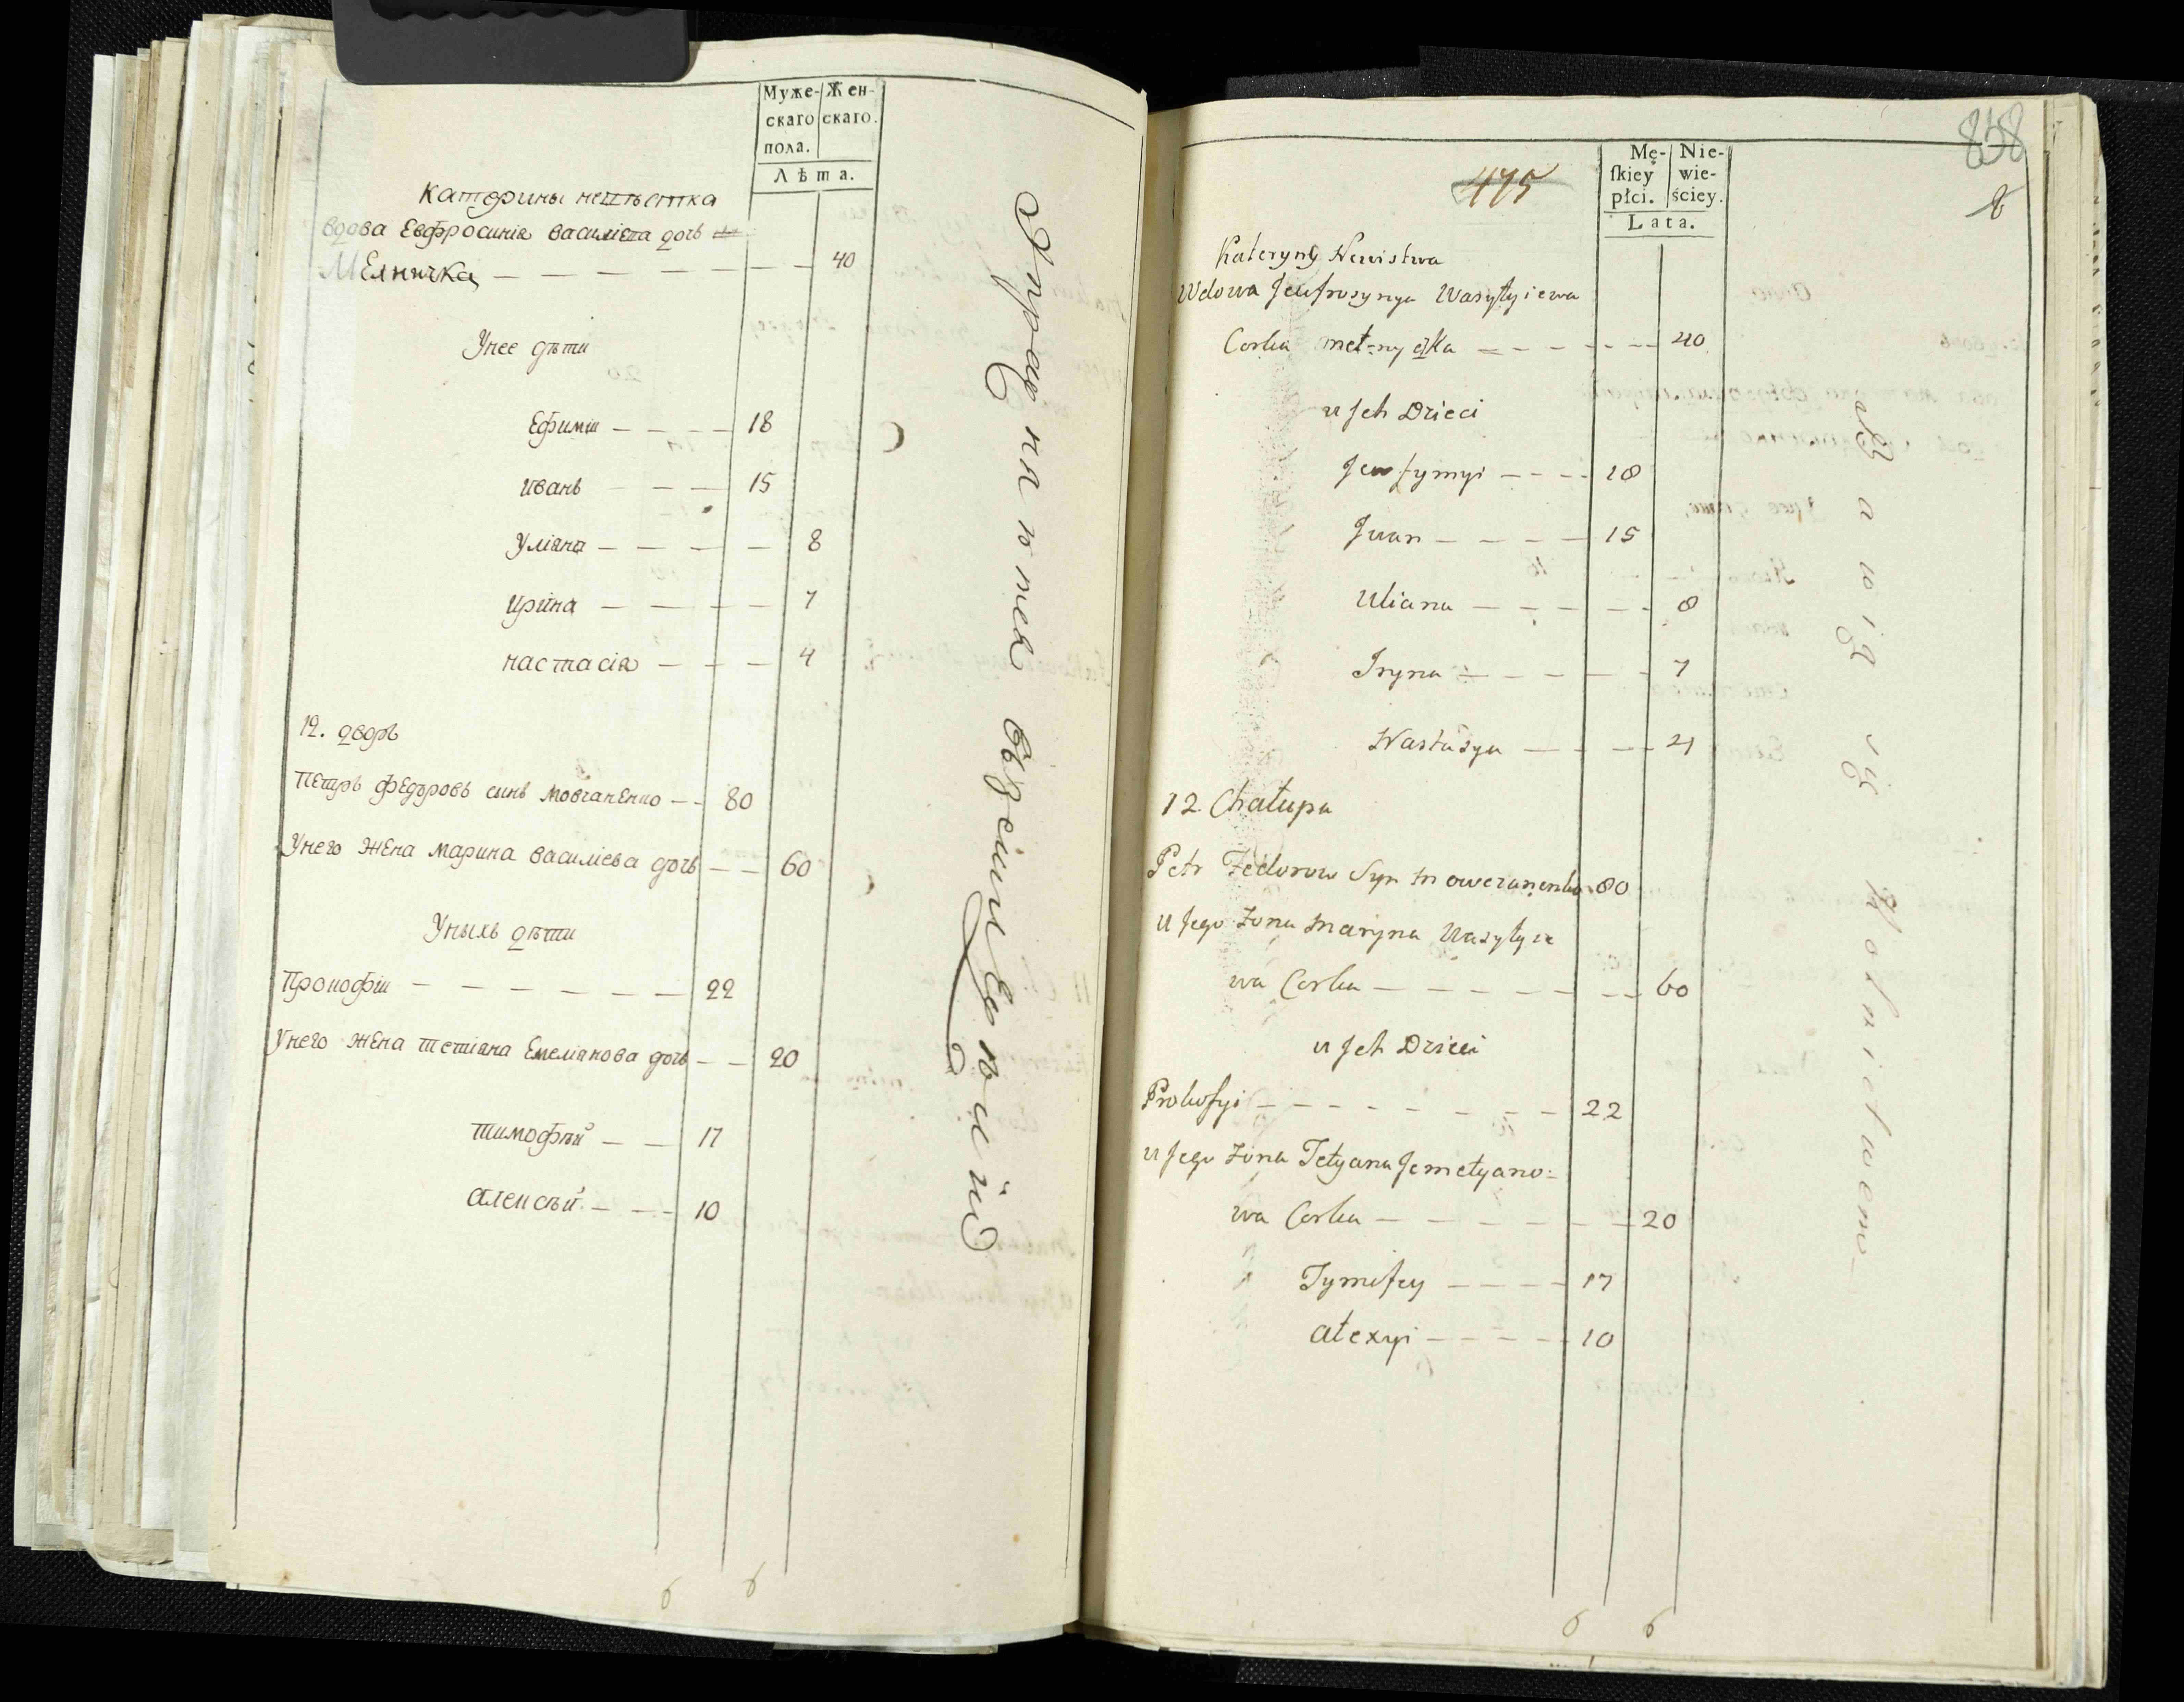 Муже-
скаго
пола.
Жен-
скаго.
Лѣта.
Катфрины невѣстка
вдова Евфросинія василіева дочь
Мелничка — — — — — — — 40
Унее дѣти
Ефимій — — — — 18
иванъ — — — 15
Уліана — — — — 8
ирина — — — — 7
настасія — — — 4
12. дворъ
Петръ федоровъ синъ мовчаненко — — 80
Унего жена марина василіева дочъ — — 60
Уныхъ дѣти
Прокофій — — — — — — 22
Унего жена тетіана Емеліанова дочъ — — 20
тимофѣй — — 17
алексѣй — — — 10
6 6
858
475
Mę-
ſkiey
płci.
Nie-
wie-
ściey.
Lata.
Kateryny Newistwa
Wdowa Jeufrosynya Wasyłyiewa
Corka mełnyczka — — — — — 40
u Jeh Dzieci
Jewfymyi — — — 18
Jwan — — — — 15
Uliana — — — — — 8
Iryna — — — — — 7
Nastasya — — — — 4
12. Chałupa
Petr Fedorow Syn mowczanenko 80
u Jego Zona Maryna Wasyłyie
wa Corka — — — — — — — 60
u Jeh Dzieci
Prokofyi — — — — — — — — 22
u Jego Zona Tetyana Jemełyano=
wa Corka — — — — — — 20
Tymofey — — — — 17
ałexyi — — — — — 10
6 6